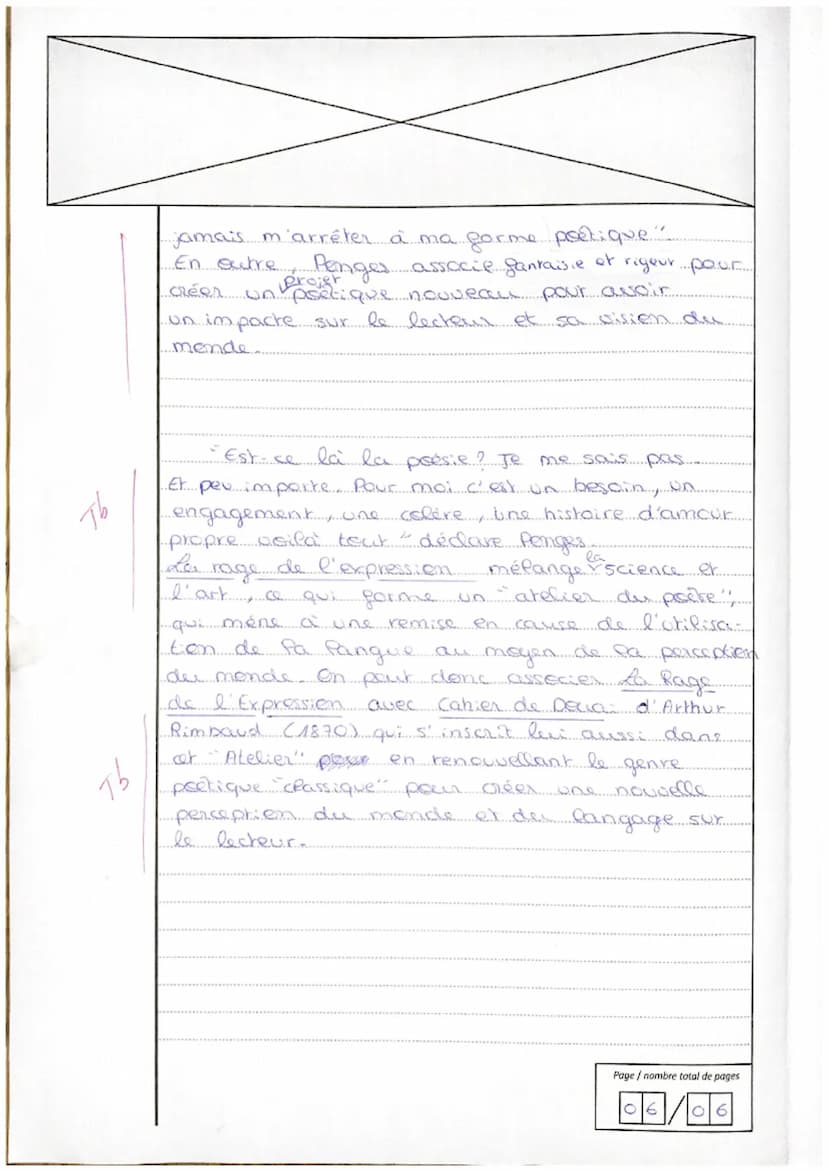 jamais m'arrêter à ma forme poétique".
En outre, Ponges associe fantaisie et rigeur pour
projet
créer un poétique nouveau pour avoir
un impacte sur le lecteur et sa vision du
monde.
"Est-ce là la poésie? Je me sais pas.
Et peu importe. Pour moi c'est un besoin, un
engagement, une colère, une histoire d'amour
propre voilà tout" déclare Ponges.
la
La rage de l'expression mélange science et
l'art, ce qui forme un "atelier du poète",
qui mène à une remise en cause de l'utilisa-
tion de la langue au moyen de la perception
du monde. On peut donc associer La Rage
de l'Expression avec Cahier de Douai d'Arthur
Rimbaud (1870) qui s'inscrit lui aussi dans
cet "Atelier" en renouvellant le genre
poétique "classique" pour créer une nouvelle
perception du monde et du langage sur
le lecteur.
Tb
Tb
Page / nombre total de pages
06/06